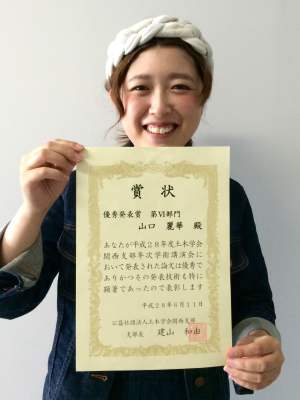 賞状
優秀発表賞 第Ⅵ部門
山口 麗華 殿
あなたが平成28年度土木学会
関西支部年次学術講演会に
おいて発表された論文は優秀で
ありかつその発表技術も特に
顕著であったので表彰します
平成28年6月11日
公益社団法人土木学会関西支部
支部長 建山 和由